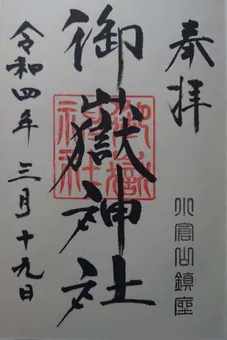 奉拝
小富山鎮座
御嶽神社
御嶽神社
令和四年三月十九日